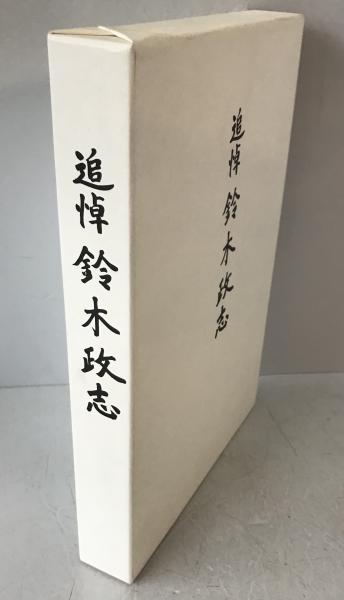 追悼 鈴木政志
追悼 鈴木政志